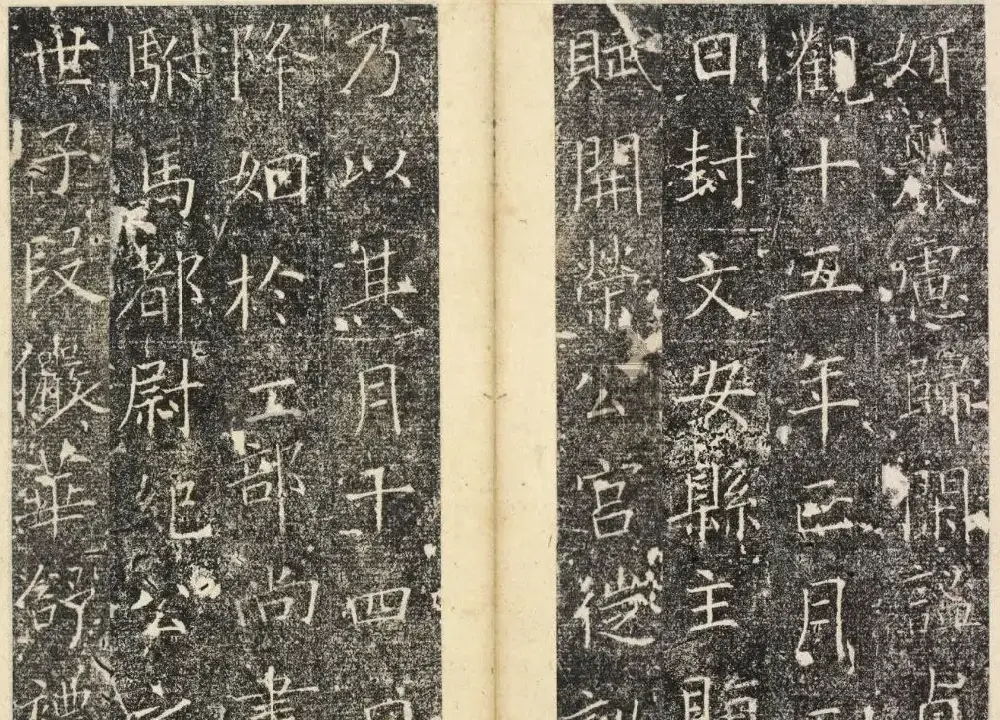 妍憲歸閑謐貞
觀十五年正月
日封文安縣主
賦開榮公宮從
乃以其月十四日
降姻於工部尚書
駙馬都尉紀公之
世子段儼華禮